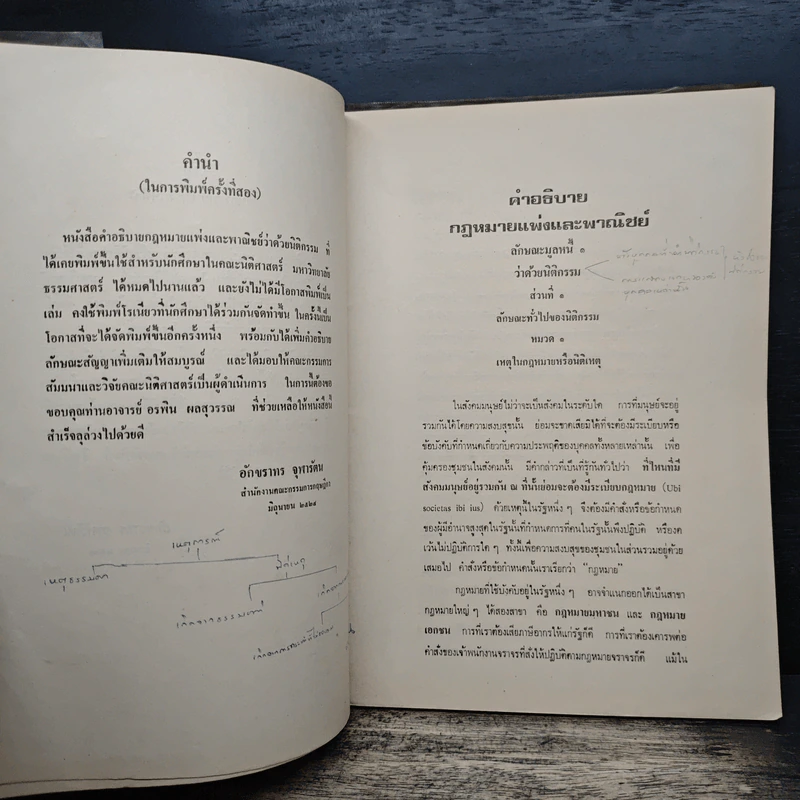 คำนำ
(ในการพิมพ์ครั้งที่สอง)
หนังสือคำอธิบายกฎหมายแพ่งและพาณิชย์ว่าด้วยนิติกรรม ที่
ได้เคยพิมพ์ขึ้นใช้สำหรับนักศึกษาในคณะนิติศาสตร์ มหาวิทยาลัย
ธรรมศาสตร์ ได้หมดไปนานแล้ว และยังไม่ได้มีโอกาสพิมพ์เป็น
เล่ม คงใช้พิมพ์โรเนียวที่นักศึกษาได้ร่วมกันจัดทำขึ้น ในครั้งนี้เป็น
โอกาสที่จะได้จัดพิมพ์ขึ้นอีกครั้งหนึ่ง พร้อมกับได้เพิ่มคำอธิบาย
ลักษณะสัญญาเพิ่มเติมให้สมบูรณ์ และได้มอบให้คณะกรรมการ
สัมมนาและวิจัยคณะนิติศาสตร์เป็นผู้ดำเนินการ ในการนี้ต้องขอ
ขอบคุณท่านอาจารย์ อรพิน ผลสุวรรณ ที่ช่วยเหลือให้หนังสือนี้
สำเร็จลุล่วงไปด้วยดี
อักขราทร จุฬารัตน
สำนักงานคณะกรรมการกฤษฎีกา
มิถุนายน ๒๕๒๕
เหตุการณ์
เหตุธรรมดา
นิติเหตุ
คำอธิบาย
กฎหมายแพ่งและพาณิชย์
ลักษณะมูลหนี้ ๑
ว่าด้วยนิติกรรม
ส่วนที่ ๑
ลักษณะทั่วไปของนิติกรรม
หมวด ๑
เหตุในกฎหมายหรือนิติเหตุ
ในสังคมมนุษย์ไม่ว่าจะเป็นสังคมในระดับใด การที่มนุษย์จะอยู่
รวมกันได้โดยความสงบสุขนั้น ย่อมจะขาดเสียมิได้ที่จะต้องมีระเบียบหรือ
ข้อบังคับที่กำหนดเกี่ยวกับความประพฤติของบุคคลทั้งหลายเหล่านั้น เพื่อ
คุ้มครองชุมชนในสังคมนั้น มีคำกล่าวที่เป็นที่รู้กันทั่วไปว่า ที่ไหนที่มี
สังคมมนุษย์อยู่รวมกัน ณ ที่นั้นย่อมจะต้องมีระเบียบกฎหมาย (Ubi
societas ibi ius) ด้วยเหตุนี้ในรัฐหนึ่ง ๆ จึงต้องมีคำสั่งหรือข้อกำหนด
ของผู้มีอำนาจสูงสุดในรัฐนั้นที่กำหนดการที่คนในรัฐนั้นพึงปฏิบัติ หรืองด
เว้นไม่ปฏิบัติการใด ๆ ทั้งนี้เพื่อความสงบสุขของชุมชนในส่วนรวมอยู่ด้วย
เสมอไป คำสั่งหรือข้อกำหนดนั้นเราเรียกว่า "กฎหมาย"
กฎหมายที่ใช้บังคับอยู่ในรัฐหนึ่ง ๆ อาจจำแนกออกได้เป็นสาขา
กฎหมายใหญ่ ๆ ได้สองสาขา คือ กฎหมายมหาชน และ กฎหมาย
เอกชน การที่เราต้องเสียภาษีอากรให้แก่รัฐก็ดี การที่เราต้องเคารพต่อ
คำสั่งของเจ้าพนักงานจราจรที่สั่งให้ปฏิบัติตามกฎหมายจราจรก็ดี แม้ใน